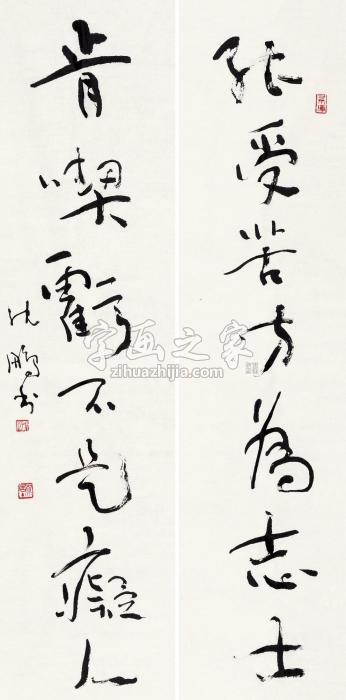 能受苦方為志士
肯喫虧不是癡人
沈鵬书
字画之家
zihuazhijia.com